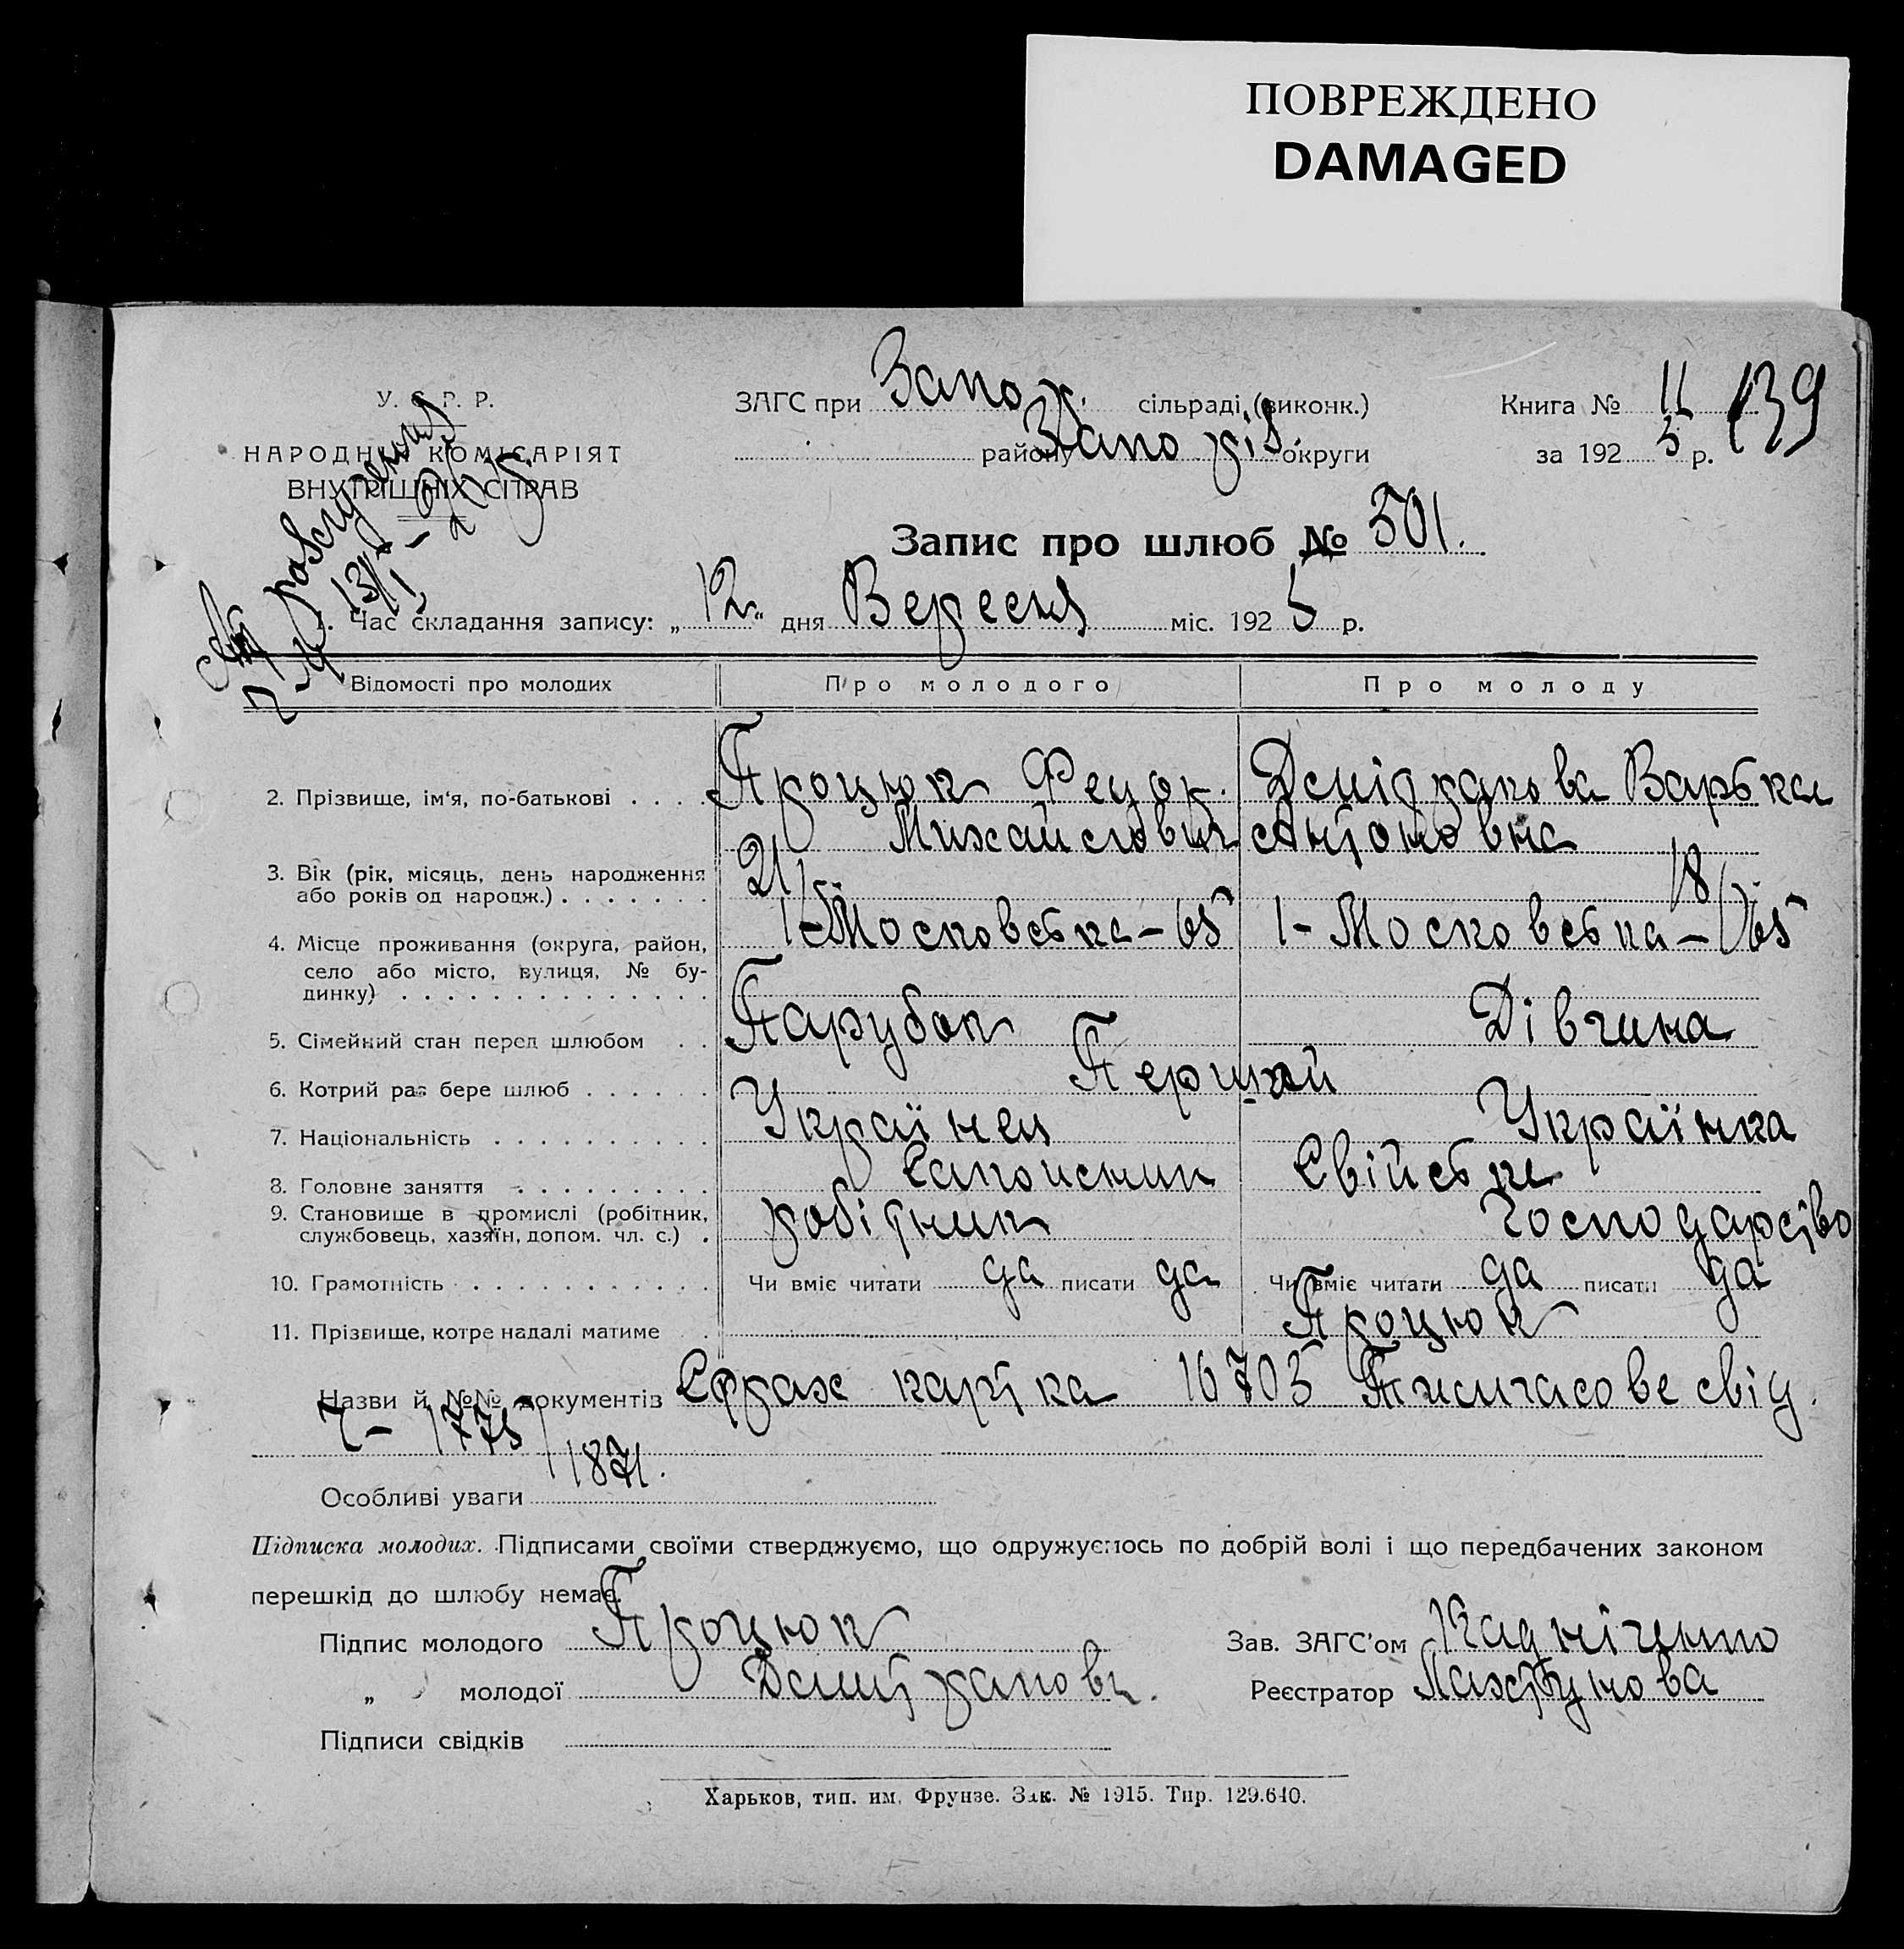 ПОВРЕЖДЕНО
DAMAGED
У. С. Р. Р.
НАРОДНИЙ КОМІСАРІЯТ
ВНУТРІШНІХ СПРАВ
ЗАГС при Запор. сільраді (виконк.)
району Запоріз. округи
Книга № 11 139
за 1925 р.
Запис про шлюб № 501.
1. Час складання запису: „12“ дня Вересня міс. 1925 р.
Відомості про молодих Про молодого Про молоду
2. Прізвище, ім‘я, по-батькові . . . . Процюк Федор. Варька
Михайлович Антоновна
3. Вік (рік, місяць, день народження
або років од народж.) . . . . . . . 21 18
4. Місце проживання (округа, район, 1-Московська-65 1-Московська-65
село або місто, вулиця, № бу-
динку) . . . . . . . . . . . . . .
5. Сімейний стан перед шлюбом . . Парубок Дівчина
6. Котрий раз бере шлюб . . . . . . Перший
7. Національність . . . . . . . . . . Українец Українка
8. Головне заняття . . . . . . . . . Сапожник Свійське
9. Становище в промислі (робітник, робітник Господарство
службовець, хазяїн, допом. чл. с.) .
10. Грамотність . . . . . . . . . . . Чи вміє читати да писати да Чи вміє читати да писати да
11. Прізвище, котре надалі матиме . Процюк
Назви й №№ документів Страх картка 16705 Тимчасове свід.
1775/1871.
Особливі уваги
Підписка молодих. Підписами своїми стверджуємо, що одружуємось по добрій волі і що передбачених законом
перешкід до шлюбу немає.
Підпис молодого Процюк Зав. ЗАГС’ом
„ молодої Реєстратор
Підписи свідків
Харьков, тип. им. Фрунзе. Зак. № 1915. Тир. 129.640.